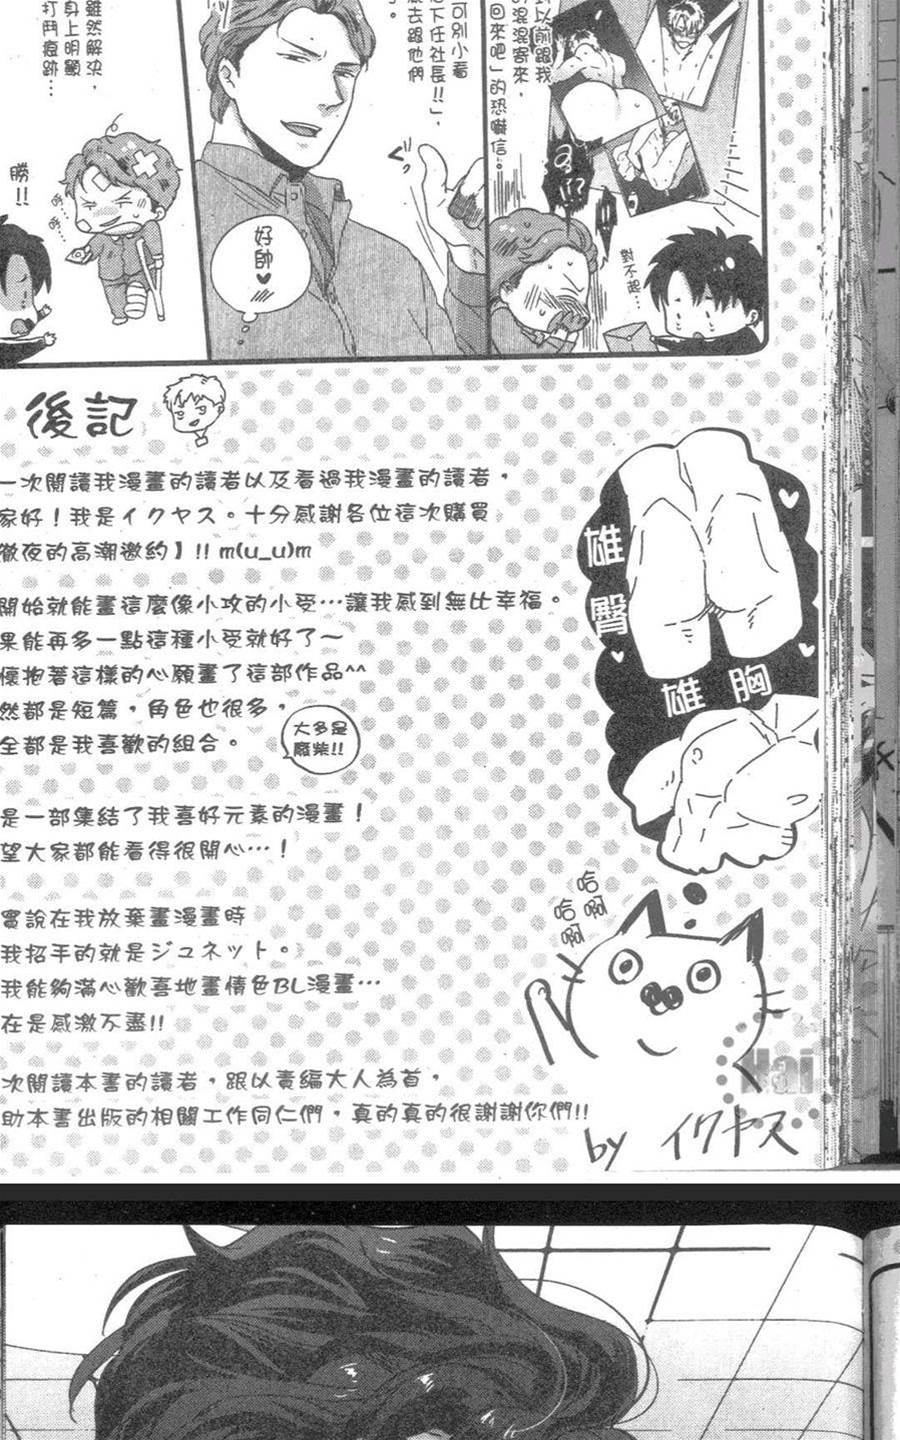 到以前跟我
的混混寄來,
回來吧」的恐嚇信。
對不起…
可別小看
下任社長!!」,
去跟他們
好帥♥
雖然解決,
身上明顯
打鬥痕跡…
勝!!
後記
一次閱讀我漫畫的讀者以及看過我漫畫的讀者,
家好!我是イクヤス。十分感謝各位這次購買
徹夜的高潮邀約】!! m(u_u)m
開始就能畫這麼像小攻的小受…讓我感到無比幸福。
果能再多一點這種小受就好了～
懷抱著這樣的心願畫了這部作品^^
然都是短篇,角色也很多,
全都是我喜歡的組合。
大多是
廢柴!!
是一部集結了我喜好元素的漫畫!
望大家都能看得很開心…!
實說在我放棄畫漫畫時
我招手的就是ジュネット。
我能夠滿心歡喜地畫情色BL漫畫…
在是感激不盡!!
次閱讀本書的讀者,跟以責編大人為首,
助本書出版的相關工作同仁們,真的真的很謝謝你們!!
雄臀
雄胸
哈啊
哈啊
by イクヤス
Hai